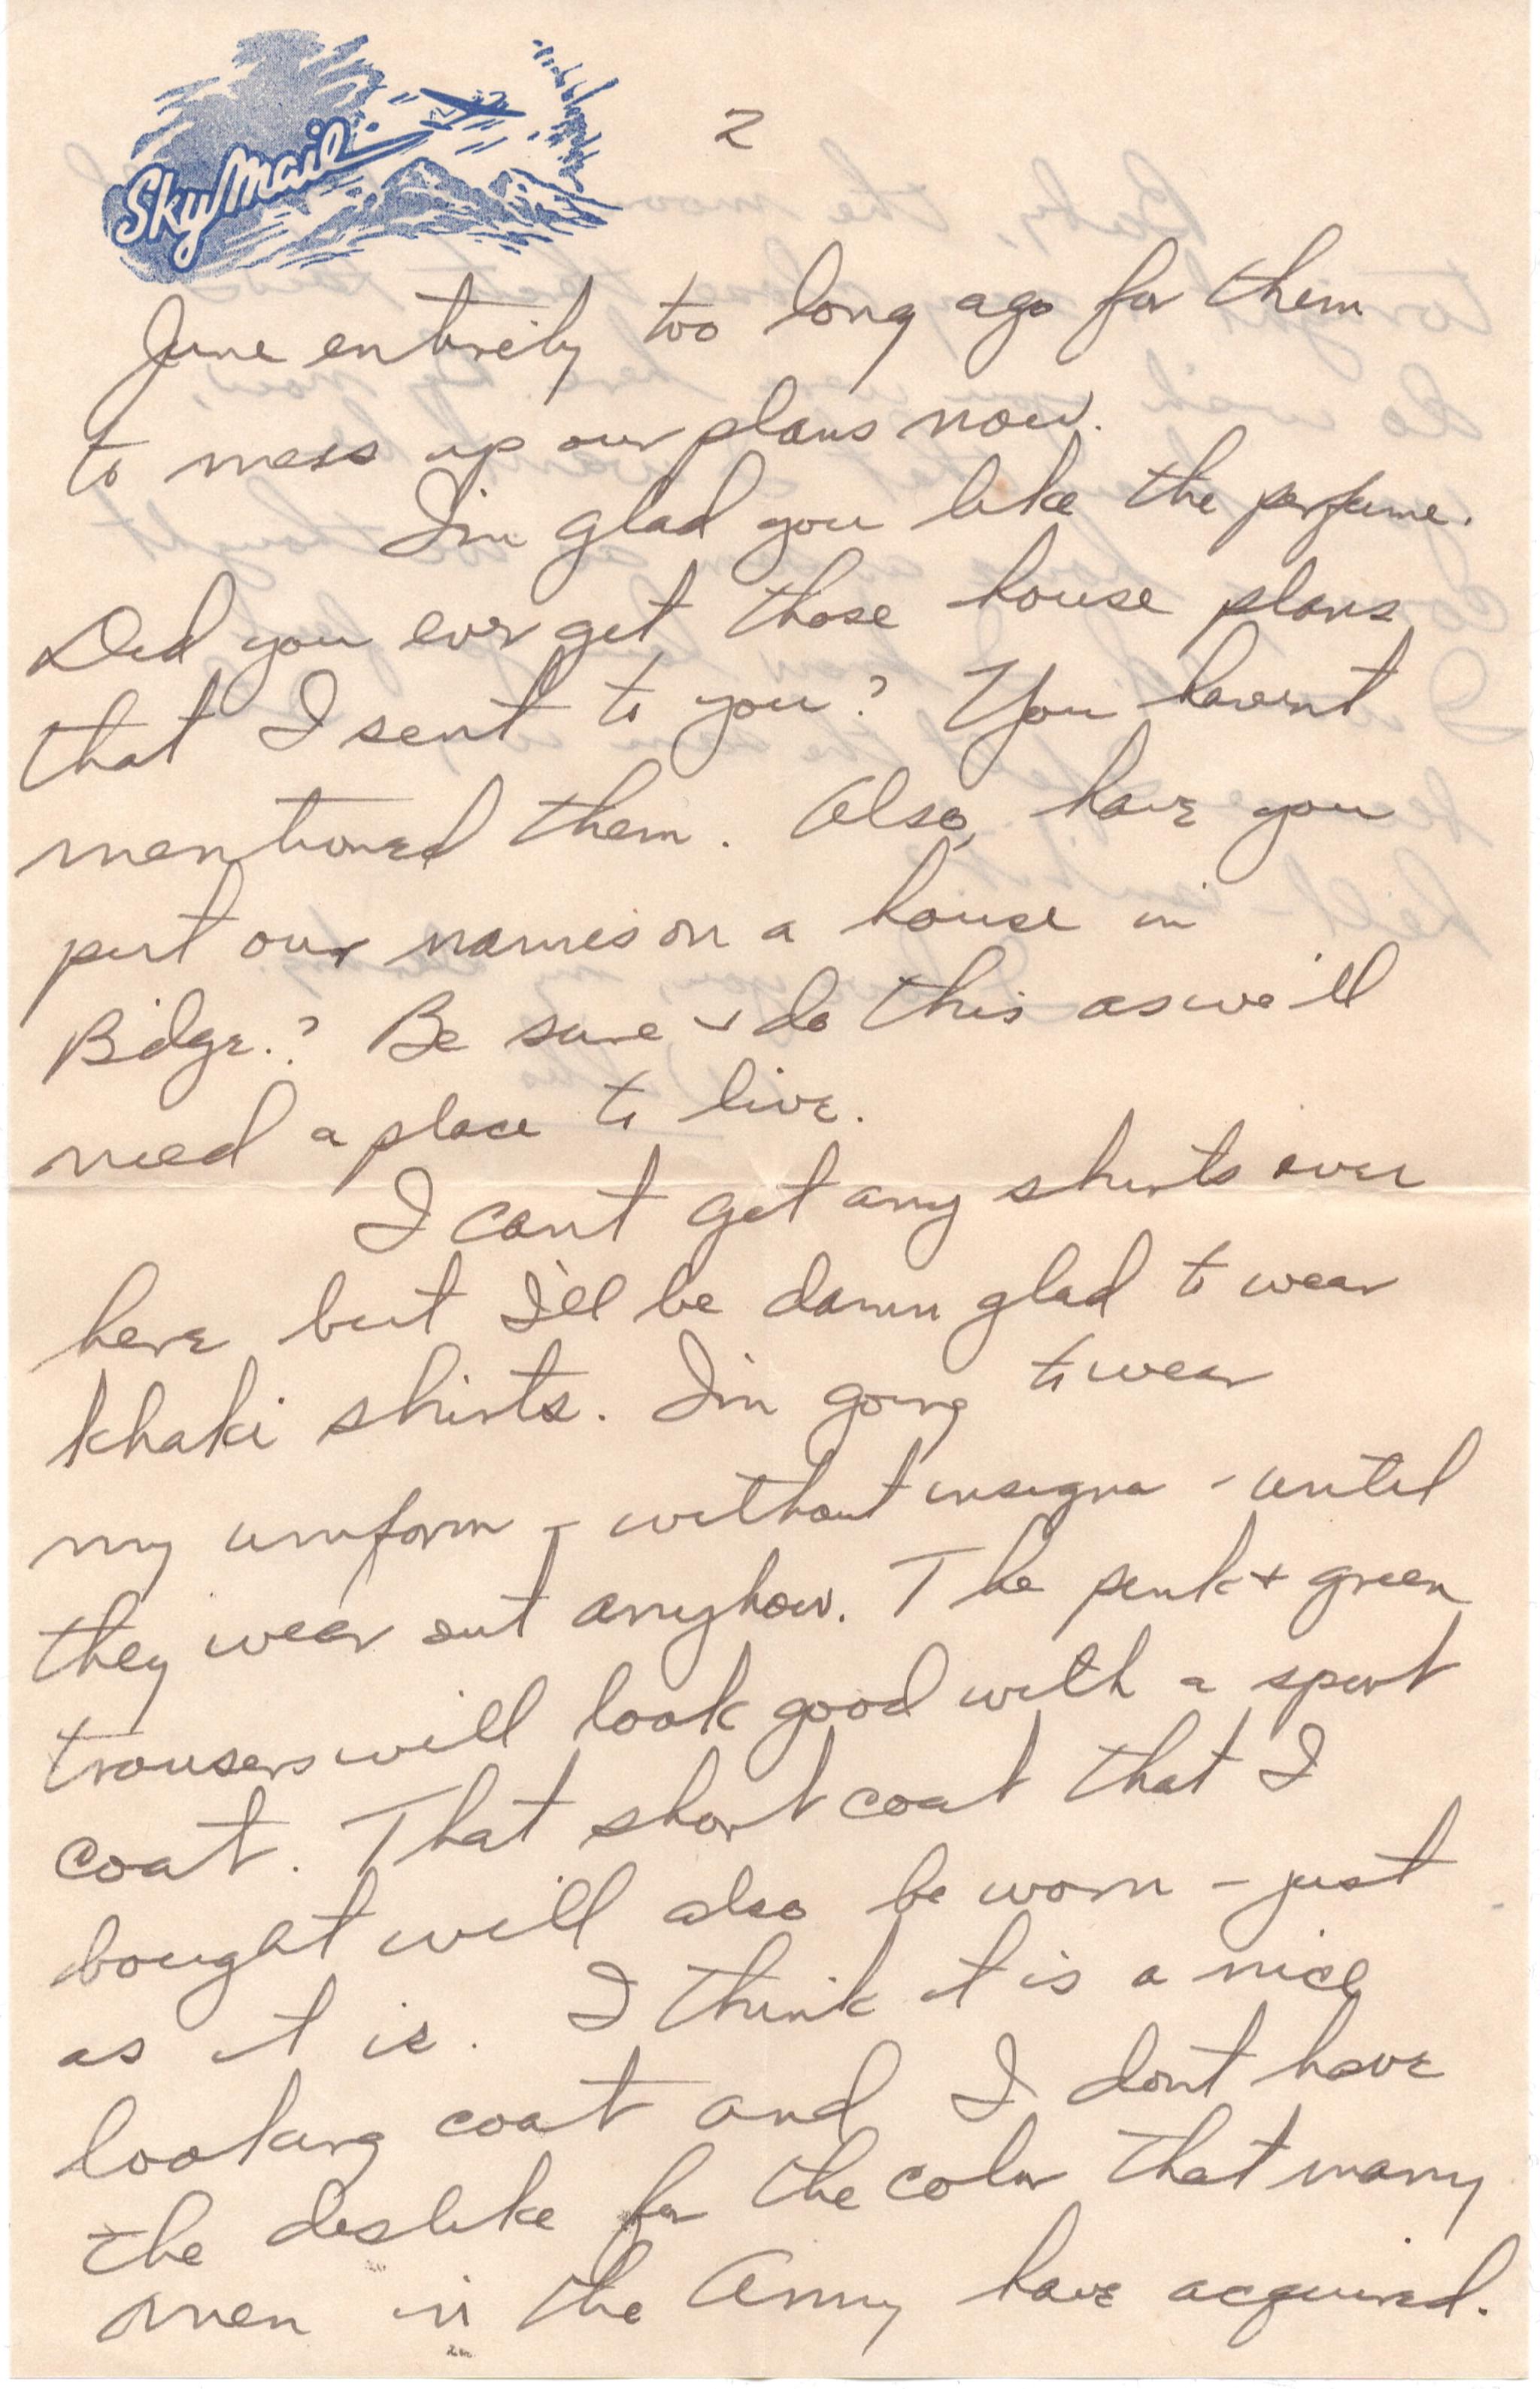 Sky Mail
2
June entirely too long ago for them
to mess up our plans now.
I'm glad you like the perfume.
Did you ever get those house plans
that I sent to you? You havent
mentioned them. Also, have you
put our names on a house in
Bidge.? Be sure & do this as we'll
need a place to live.
I cant get any shirts over
here but I'll be damn glad to wear
khaki shirts. I'm going to wear
my uniform - without insigna - until
they wear out anyhow. The pink & green
trousers will look good with a sport
coat. That short coat that I
bought will also be worn - just
as it is. I think it is a nice
looking coat and I dont have
the dislike for the color that many
men in the Army have acquired.